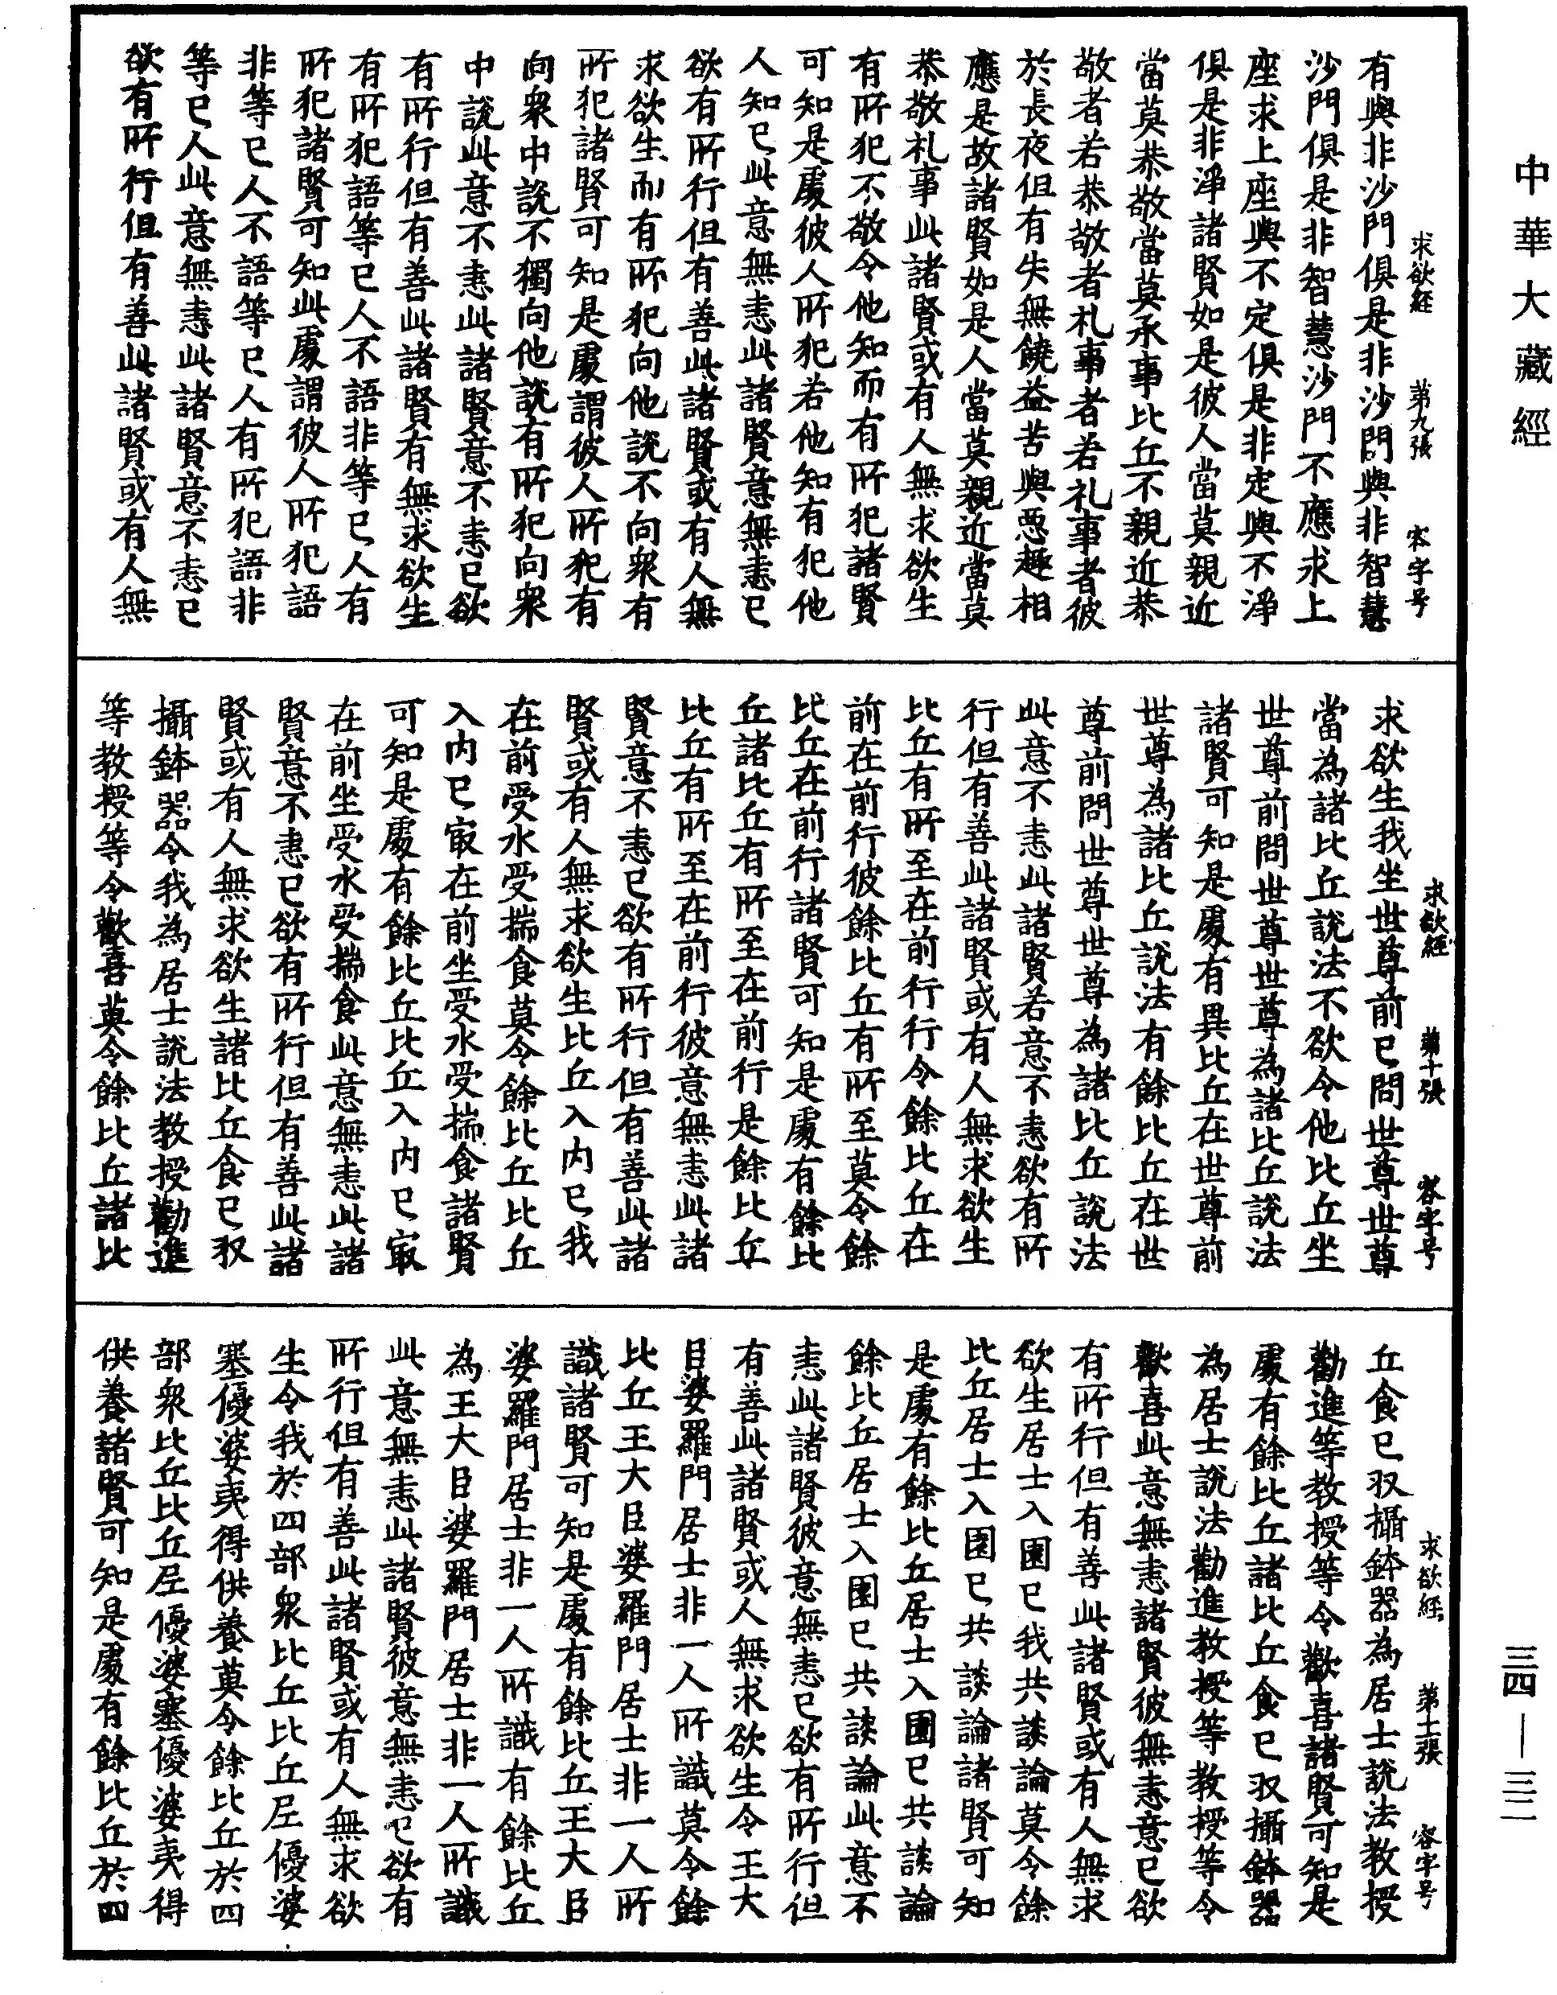 中華大藏經
求欲經　第九張　容字号
有與非沙門俱是非沙門與非智慧
沙門俱是非智慧沙門不應求上
座求上座與不定俱是非定與不淨
俱是非淨諸賢如是彼人當莫親近
當莫恭敬當莫承事比丘不親近恭
敬者若恭敬者礼事者若礼事者彼
於長夜但有失無饒益苦與惡趣相
應是故諸賢如是人當莫親近當莫
恭敬礼事此諸賢或有人無求欲生
有所犯不敬令他知而有所犯諸賢
可知是處彼人所犯若他知有犯他
人知已此意無恚此諸賢意無恚已
欲有所行但有善此諸賢或有人無
求欲生而有所犯向他說不向衆有
所犯諸賢可知是處謂彼人所犯有
向衆中說不獨向他說有所犯向衆
中說此意不恚此諸賢意不恚已欲
有所行但有善此諸賢有無求欲生
有所犯語等已人不語非等已人有
所犯諸賢可知此處謂彼人所犯語
非等已人不語等已人有所犯語非
等已人此意無恚此諸賢意不恚已
欲有所行但有善此諸賢或有人無
求欲經　第十張　容字号
求欲生我坐世尊前已問世尊世尊
當為諸比丘說法不欲令他比丘坐
世尊前問世尊世尊為諸比丘說法
諸賢可知是處有異比丘在世尊前
世尊為諸比丘說法有餘比丘在世
尊前問世尊世尊為諸比丘說法
此意不恚此諸賢若意不恚欲有所
行但有善此諸賢或有人無求欲生
比丘有所至在前行行令餘比丘在
前在前行彼餘比丘有所至莫令餘
比丘在前行諸賢可知是處有餘比
丘諸比丘有所至在前行是餘比丘
比丘有所至在前行彼意無恚此諸
賢意不恚已欲有所行但有善此諸
賢或有人無求欲生比丘入内已我
在前受水受揣食莫令餘比丘比丘
入内已㝡在前坐受水受揣食諸賢
可知是處有餘比丘比丘入内已㝡
在前坐受水受揣食此意無恚此諸
賢意不恚已欲有所行但有善此諸
賢或有人無求欲生諸比丘食已収
攝鉢器令我為居士說法教授勸進
等教授等令歡喜莫令餘比丘諸比
求欲經　第十一張　容字号
丘食已収攝鉢器為居士說法教授
勸進等教授等令歡喜諸賢可知是
處有餘比丘諸比丘食已収攝鉢器
為居士說法勸進教授等教授等令
歡喜此意無恚諸賢彼無恚意已欲
有所行但有善此諸賢或有人無求
欲生居士入園已我共談論莫令餘
比丘居士入園已共談論諸賢可知
是處有餘比丘居士入園已共談論
餘比丘居士入園已共談論此意不
恚此諸賢彼意無恚已欲有所行但
有善此諸賢或人無求欲生令王大
臣婆羅門居士非一人所識莫令餘
比丘王大臣婆羅門居士非一人所
識諸賢可知是處有餘比丘王大臣
婆羅門居士非一人所識有餘比丘
為王大臣婆羅門居士非一人所識
此意無恚此諸賢彼意無恚已欲有
所行但有善此諸賢或有人無求欲
生令我於四部衆比丘比丘尼優婆
塞優婆夷得供養莫令餘比丘於四
部衆比丘比丘尼優婆塞優婆夷得
供養諸賢可知是處有餘比丘於四
三四—三二